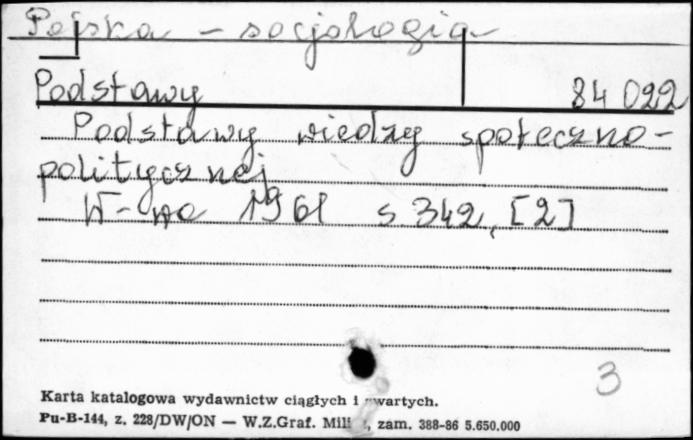 Polska - socjologia
Podstawy 84 022
Podstawy wiedzy społeczno-
politycznej
W-wa 1961 s. 342, [2]
3
Karta katalogowa wydawnictw ciągłych i zwartych.
Pu-B-144, z. 228/DW/ON — W.Z.Graf. zam. 388-86 5.650.000